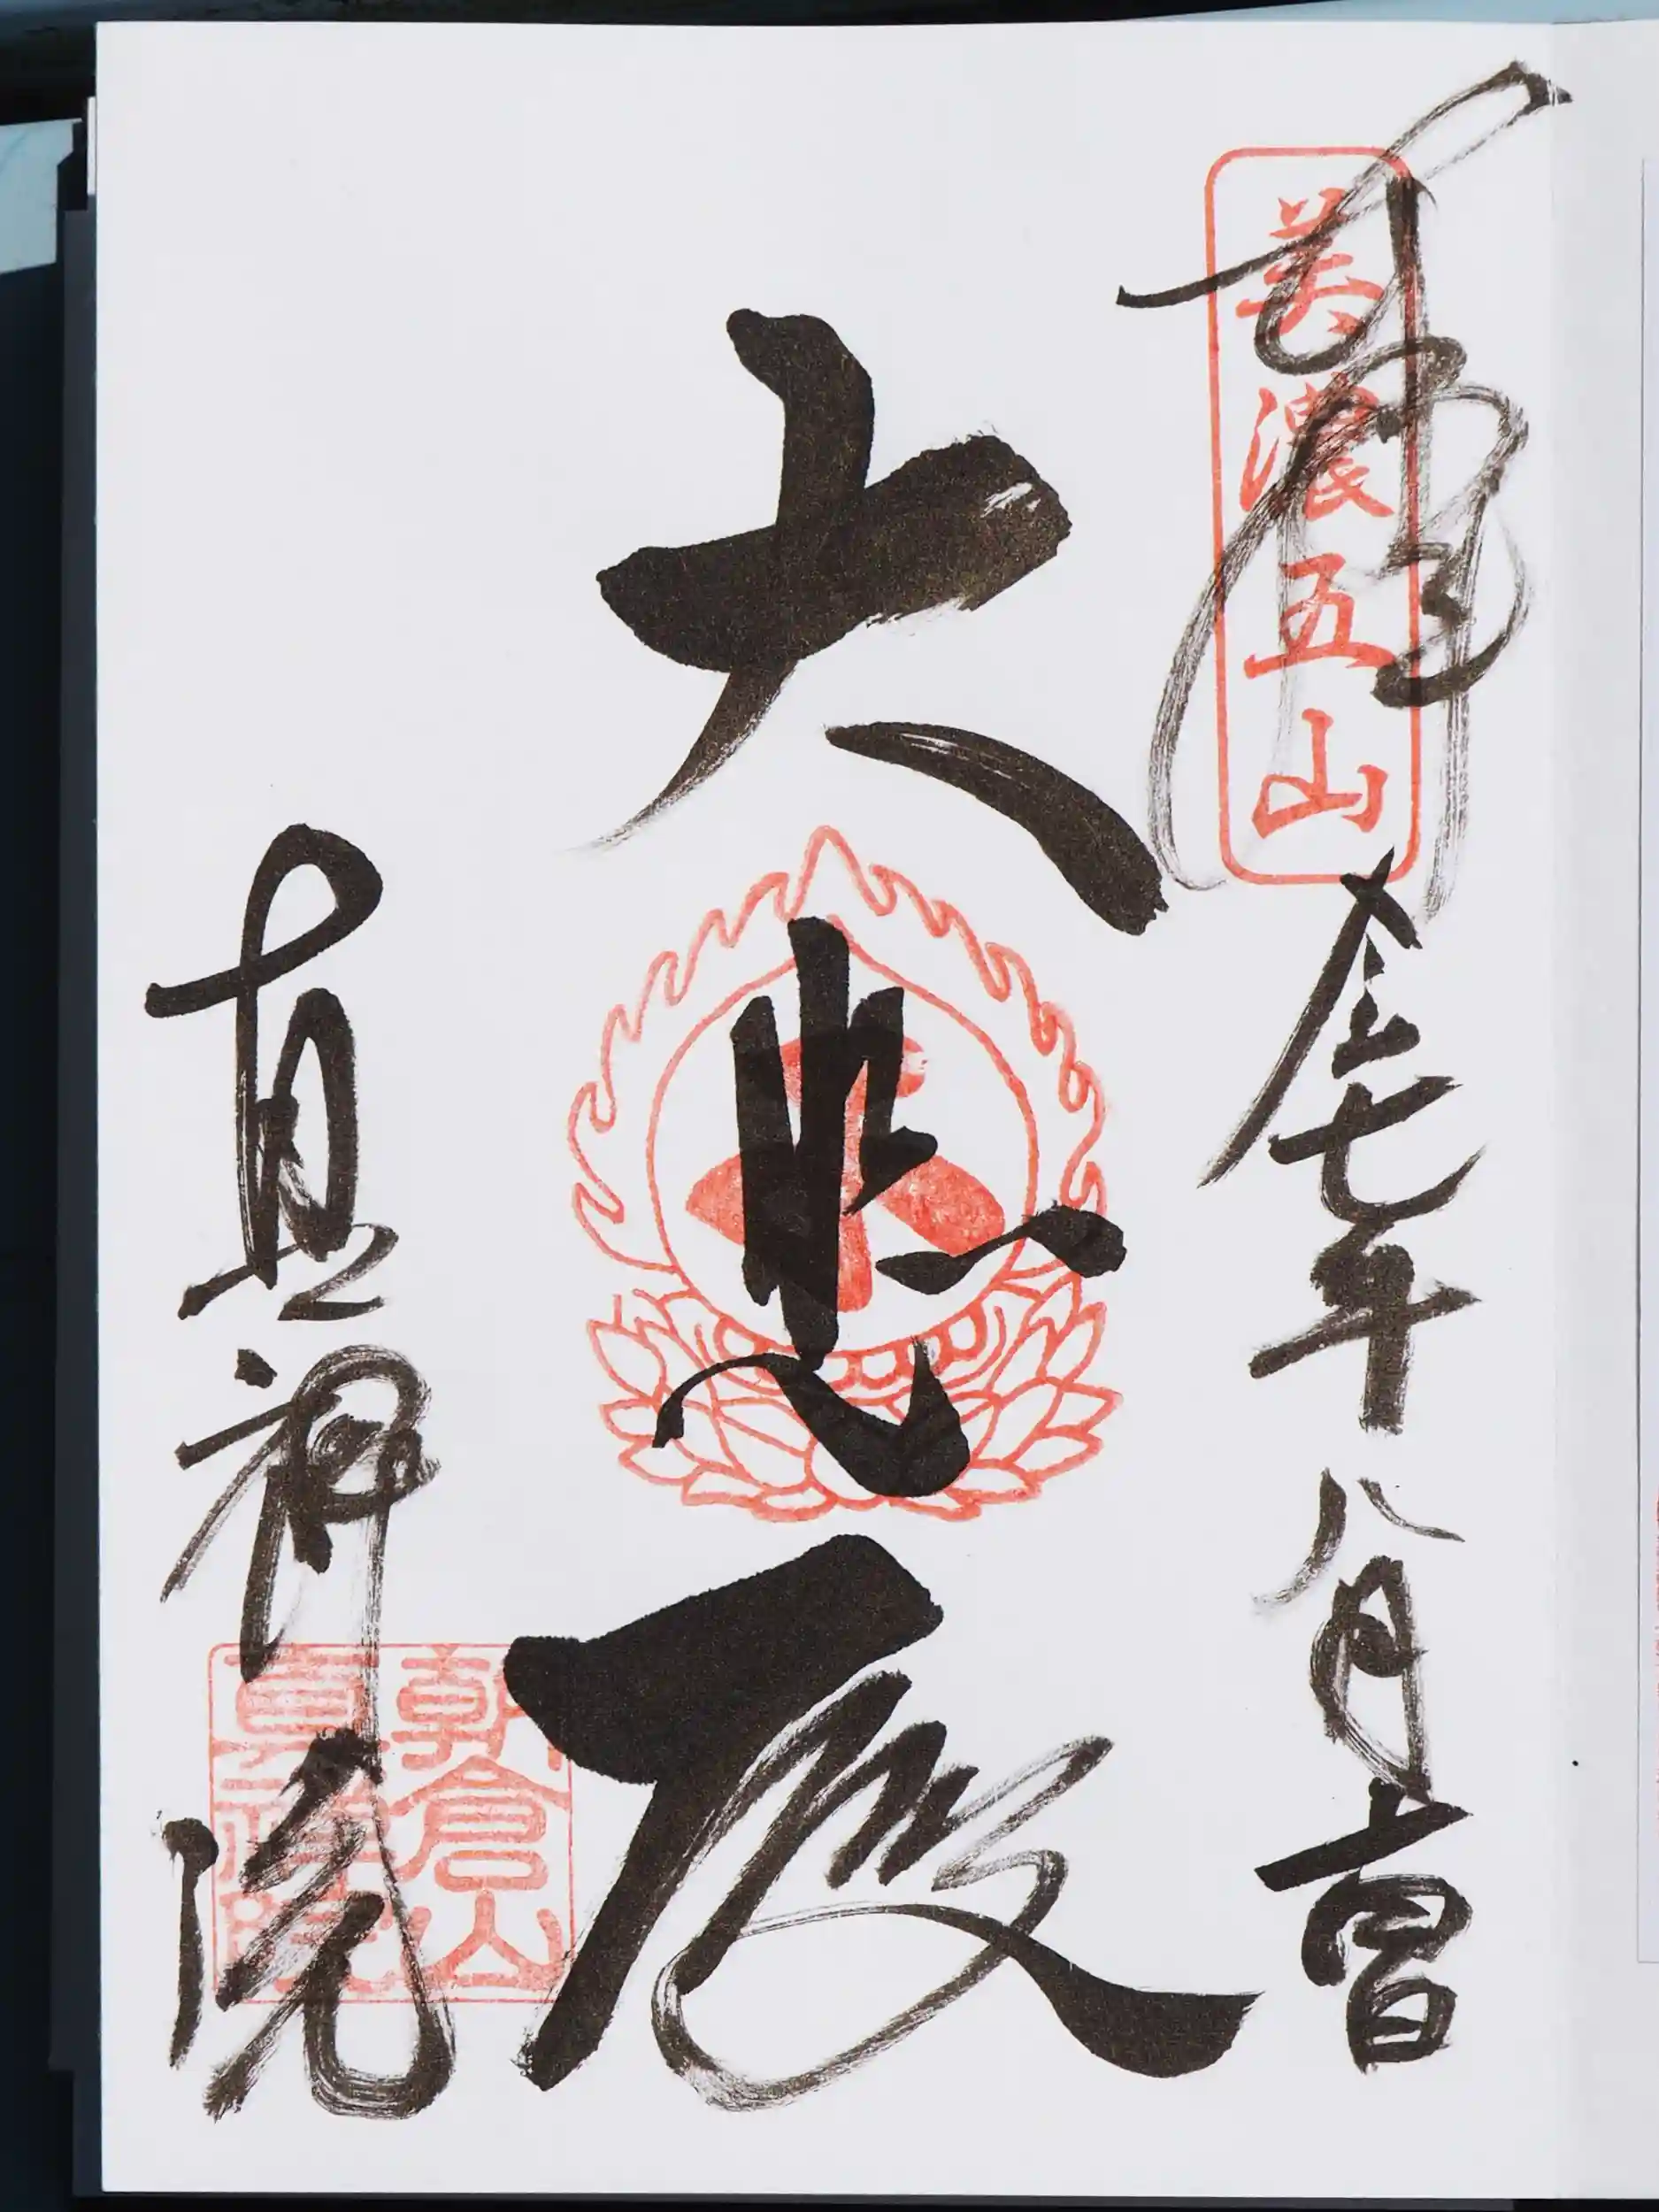 奉拝
美濃五山
令和七年八月十四日
大悲殿
真禅院
朝倉山
真禅院